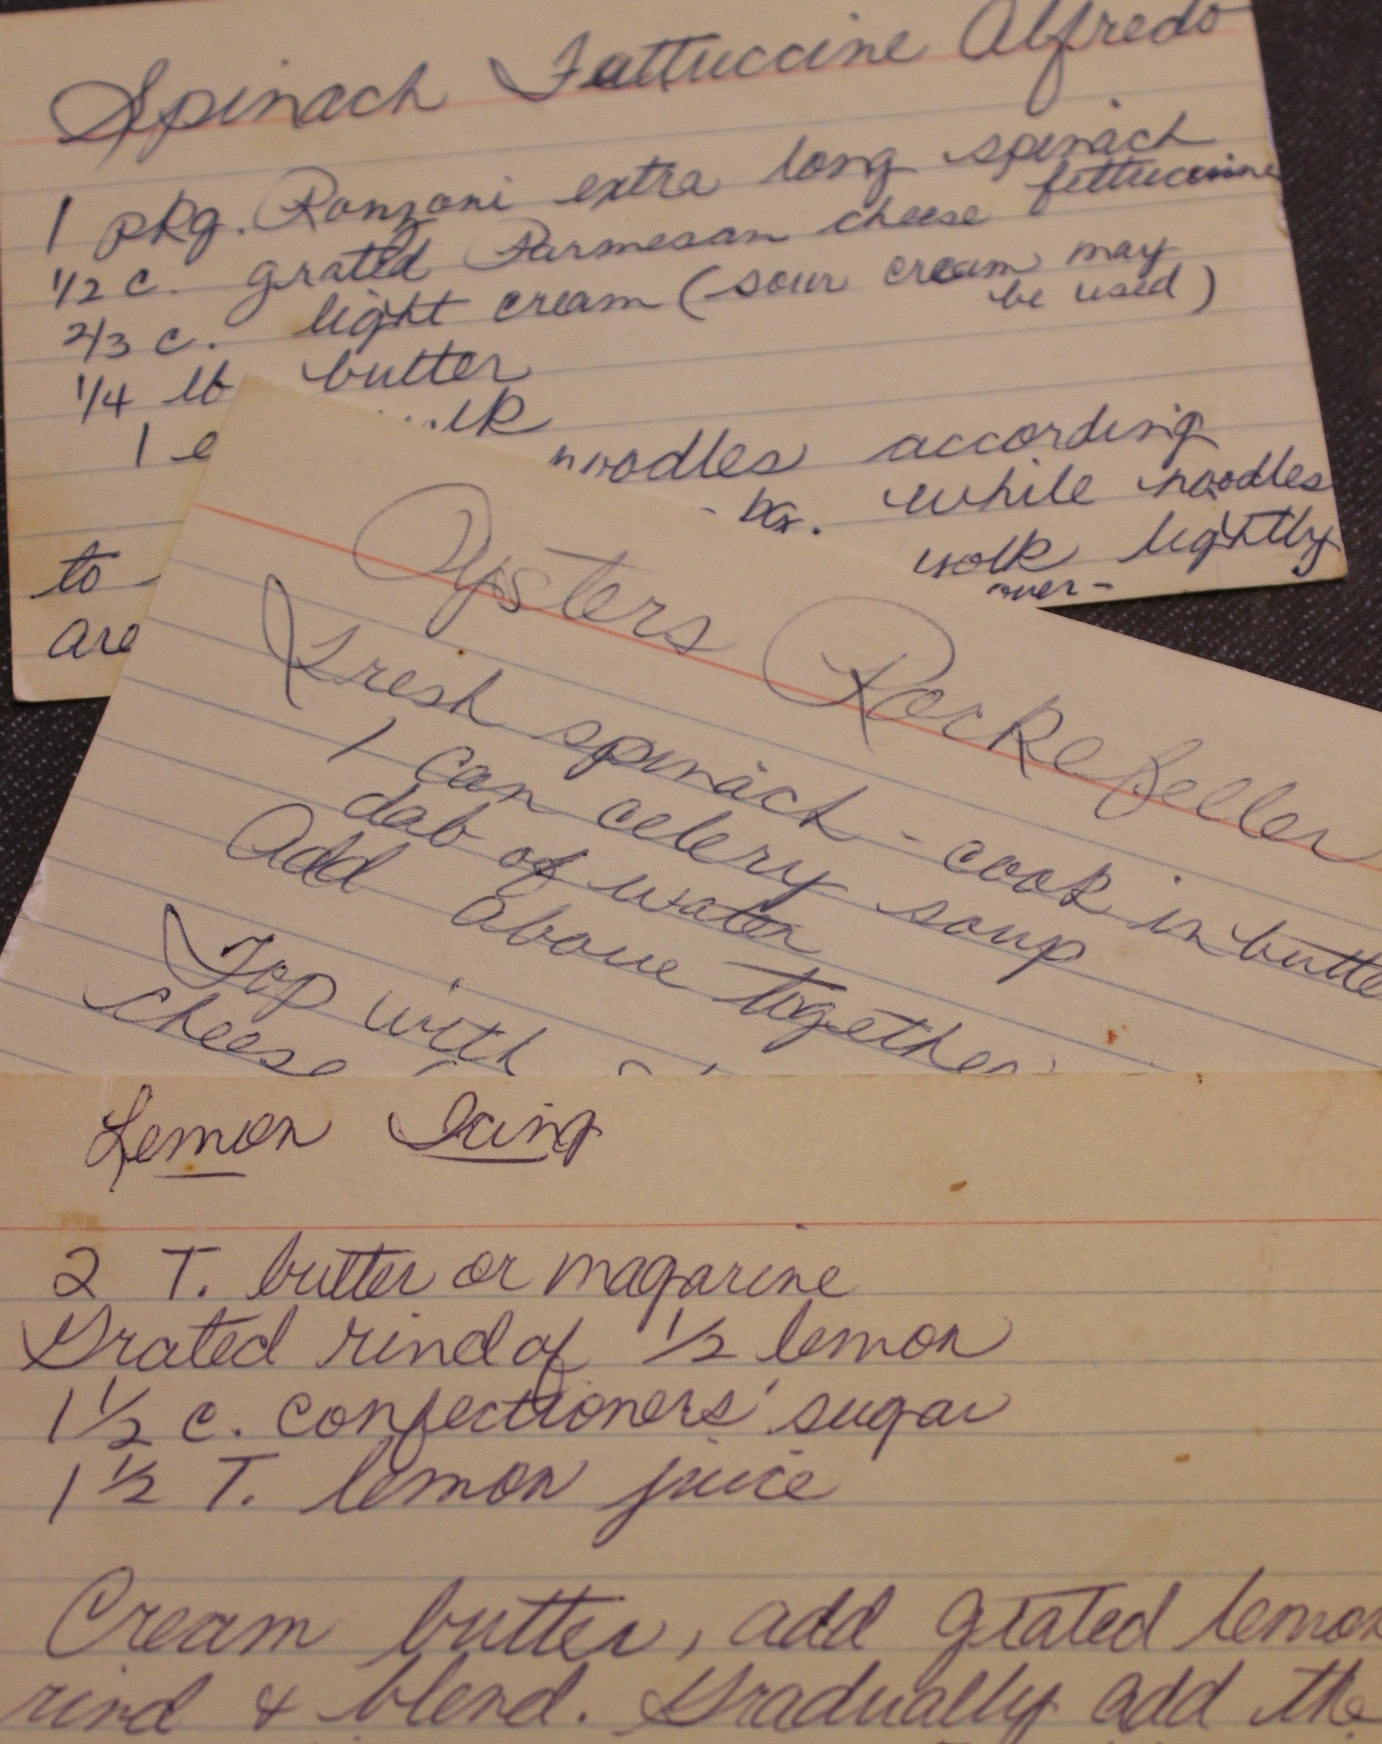 Spinach Fettuccine Alfredo
1 pkg. Ronzoni extra long spinach
fettuccine
1/2 c. grated Parmesan cheese
2/3 c. light cream (sour cream may
be used)
1/4 lb butter
1 e
noodles according
to box. while noodles
are yolk lightly
over-
Oysters Rockefeller
Fresh spinach - cook in butte
1 can celery soup
dab of water
Add above together
Top with
cheese
Lemon Icing
2 T. butter or magarine
Grated rind of 1/2 lemon
1 1/2 c. confectioners' sugar
1 1/2 T. lemon juice
Cream butter, add grated lemon
rind & blend. Gradually add the